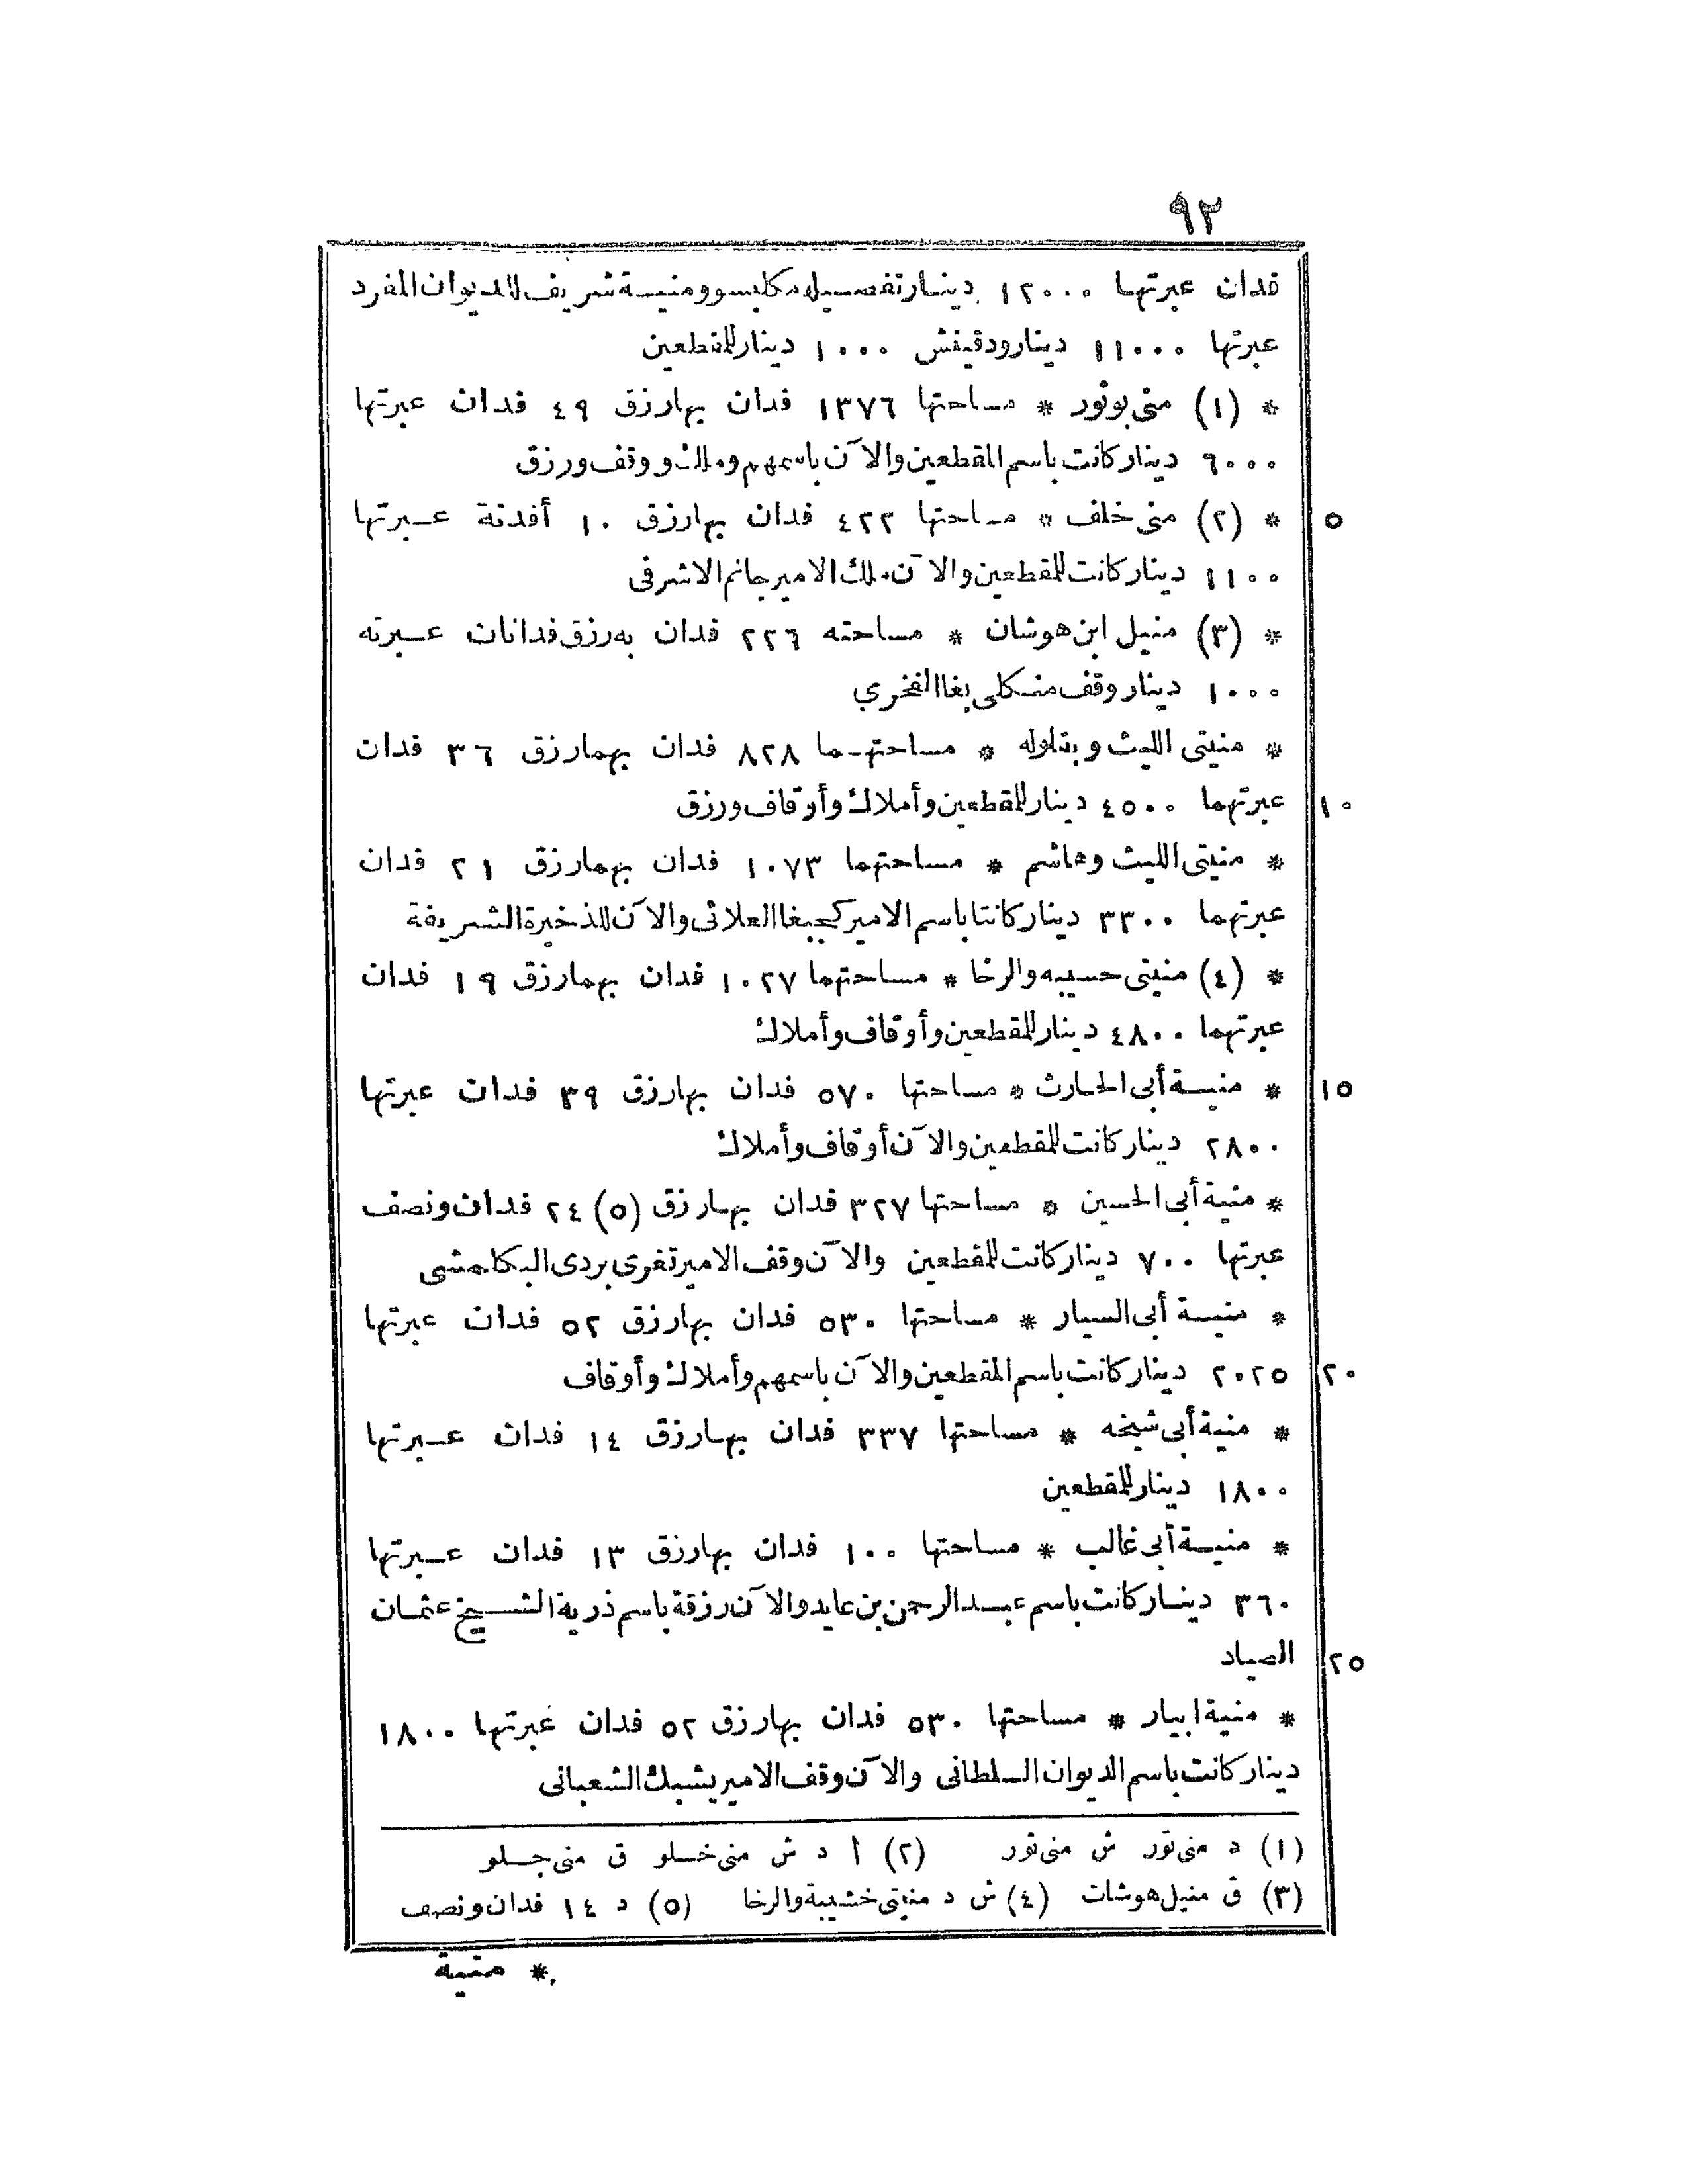 ٩٢
فدان عبرتها ١٢٠٠٠ دينار تفصيله مكليسو ومنية شريف للديوان المفرد
عبرتها ١١٠٠٠ دينار ودقيقش ١٠٠٠ دينار للمقطعين
* (١) منى بوثور * مساحتها ١٣٧٦ فدان بها رزق ٤٩ فدان عبرتها
٦٠٠٠ دينار كانت باسم المقطعين والآن باسمهم وملك ووقف ورزق
* (٢) منى خلف * مساحتها ٤٢٢ فدان بها رزق ١٠ أفدنة عبرتها
٥
١١٠٠ دينار كانت للمقطعين والآن ملك الامير جانم الاشرفى
* (٣) منيل ابن هوشان * مساحته ٢٢٦ فدان به رزق فدانات عبرته
١٠٠٠ دينار وقف منكلى بغا الفخري
* منيتى الليث وبتلوله * مساحتهما ٨٢٨ فدان بهما رزق ٣٦ فدان
عبرتهما ٤٥٠٠ دينار للمقطعين وأملاك وأوقاف ورزق
١٠
* منيتى الليث وهاشم * مساحتهما ١٠٧٣ فدان بهما رزق ٢١ فدان
عبرتهما ٣٣٠٠ دينار كانتا باسم الامير كجبغا العلائى والآن للذخيرة الشريفة
* (٤) منيتى حسيبه والرخا * مساحتهما ١٠٢٧ فدان بهما رزق ١٩ فدان
عبرتهما ٤٨٠٠ دينار للمقطعين وأوقاف وأملاك
* منية أبى الحارث * مساحتها ٥٧٠ فدان بها رزق ٣٩ فدان عبرتها
١٥
٢٨٠٠ دينار كانت للمقطعين والآن أوقاف وأملاك
* منية أبى الحسين * مساحتها ٣٢٧ فدان بها رزق (٥) ٢٤ فدان ونصف
عبرتها ٧٠٠ دينار كانت للمقطعين والآن وقف الامير تغرى بردى البكلمشى
* منية أبى السيار * مساحتها ٥٣٠ فدان بها رزق ٥٢ فدان عبرتها
٢٠٢٥ دينار كانت باسم المقطعين والآن باسمهم وأملاك وأوقاف
٢٠
* منية أبى شيخه * مساحتها ٣٣٧ فدان بها رزق ١٤ فدان عبرتها
١٨٠٠ دينار للمقطعين
* منية أبى غالب * مساحتها ١٠٠ فدان بها رزق ١٣ فدان عبرتها
٣٦٠ دينار كانت باسم عبد الرحمن بن عايد والآن رزقة باسم ذرية الشيخ عثمان
الصياد
٢٥
* منية ابيار * مساحتها ٥٣٠ فدان بها رزق ٥٢ فدان عبرتها ١٨٠٠
دينار كانت باسم الديوان السلطانى والآن وقف الامير يشبك الشعبانى
(١) د منى تور ش منى ثور (٢) أ د ش منى خلو ق منى جلو
(٣) ق منيل هوشات (٤) ش د منيتى خشيبة والرخا (٥) د ١٤ فدان ونصف
* منية